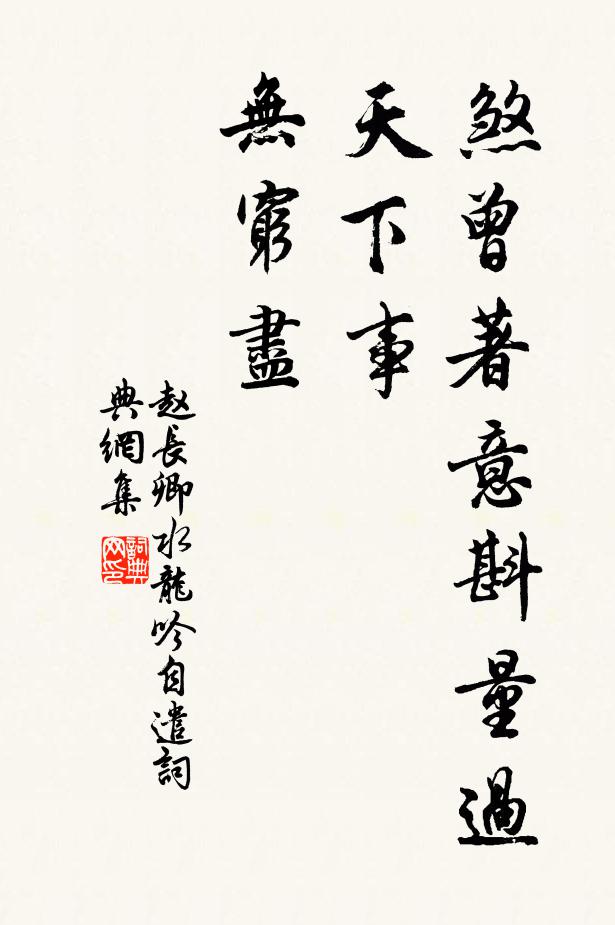 煞曾著意斟量過
天下事
無窮盡
赵長卿水龍吟自遣詞
典網集
詞典网印